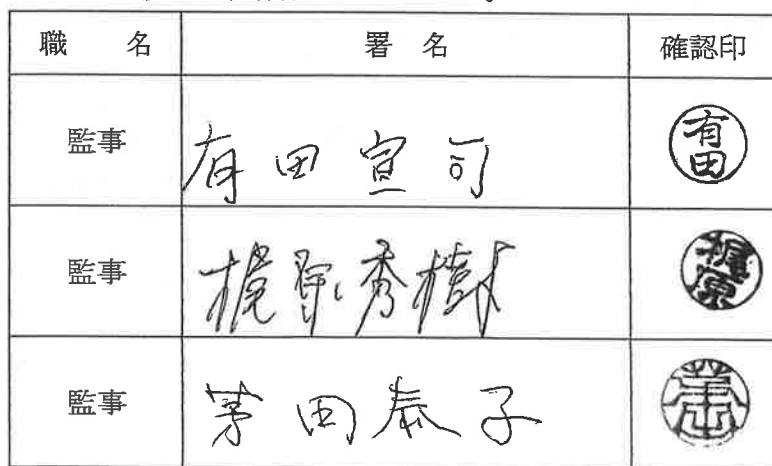 職 名 署 名 確認印
監事 有田宣司 有田
監事 梶原秀樹 梶原
監事 茅田泰子